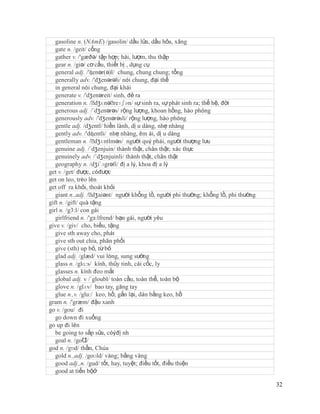 gasoline n. (NAmE) /gasolin/ dầu lửa, dầu hỏa, xăng
gate n. /geit/ cổng
gather v. /'gæðə/ tập hợp; hái, lượm, thu thập
gear n. /giə/ cơ cấu, thiết bị , dụng cụ
general adj. /'ʤenər(ə)l/ chung, chung chung; tổng
generally adv. /'dʒenərəli/ nói chung, đại thể
in general nói chung, đại khái
generate v. /'dʒenəreit/ sinh, đẻ ra
generous adj. /´dʒenərəs/ rộng lượng, khoan hồng, hào phóng
generously adv. /'dʒenərəsli/ rộng lượng, hào phóng
gentle adj. /dʒentl/ hiền lành, dịu dàng, nhẹ nhàng
gently adv. /'dʤentli/ nhẹ nhàng, êm ái, dịu dàng
genuine adj. /´dʒenjuin/ thành thật, chân thật; xác thực
genuinely adv. /´dʒenjuinli/ thành thật, chân thật
geography n. /dʒi´ɔgrəfi/ địa lý, khoa địa lý
get v. /get/ được, có được
get on leo, trèo lên
get off ra khỏi, thoát khỏi
gift n. /gift/ quà tặng
girl n. /g3:l/ con gái
girlfriend n. /'gɜ:lfrend/ bạn gái, người yêu
give v. /giv/ cho, biếu, tặng
give sth away cho, phát
give sth out chia, phân phối
give (sth) up bỏ, từ bỏ
glad adj. /glæd/ vui lòng, sung sướng
glass n. /glɑ:s/ kính, thủy tinh, cái cốc, ly
glasses n. kính đeo mắt
global adj. v /´gloubl/ toàn cầu, toàn thể, toàn bộ
glove n. /glʌv/ bao tay, găng tay
glue n., v. /glu:/ keo, hồ; gắn lại, dán bằng keo, hồ
gram n. /'græm/ đậu xanh
go v. /gou/ đi
go down đi xuống
go up đi lên
god n. /gɒd/ thần, Chúa
gold n.,adj. /goʊld/ vàng; bằng vàng
good adj.,n. /gud/ tốt, hay, tuyệt; điều tốt, điều thiện
32